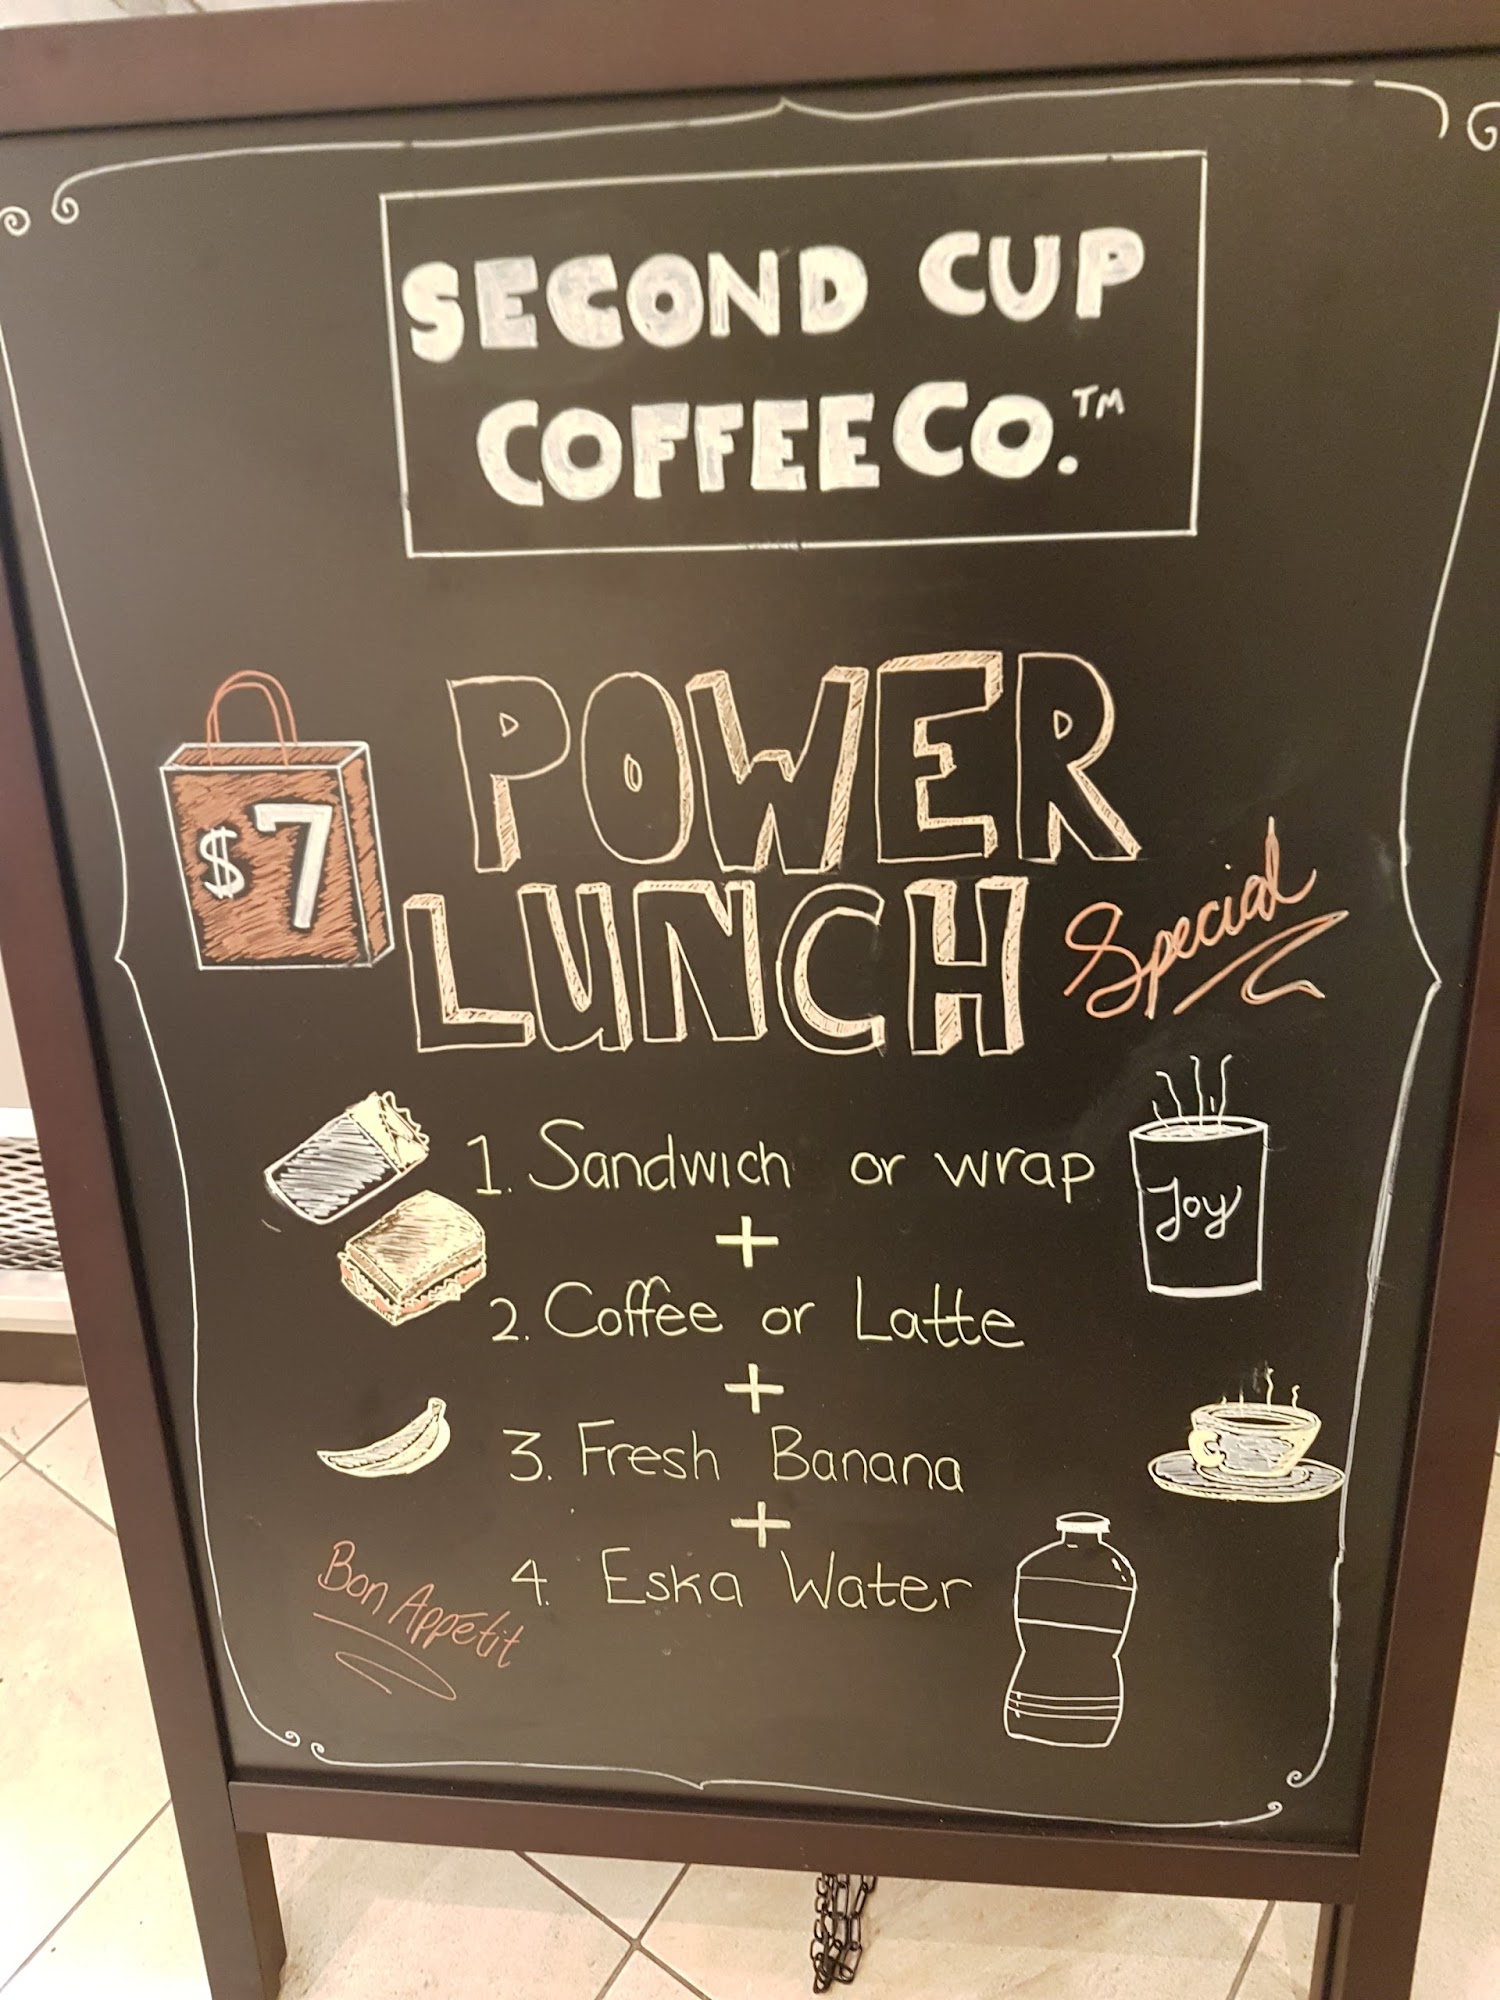 SECOND CUP
COFFEE CO.™
$7
POWER
LUNCH Special
1. Sandwich or wrap
Joy
+
2. Coffee or Latte
+
3. Fresh Banana
+
4. Eska Water
Bon Appétit